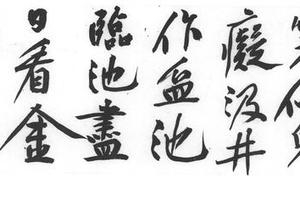 癡汲井
作盆池
臨池盡
日看金